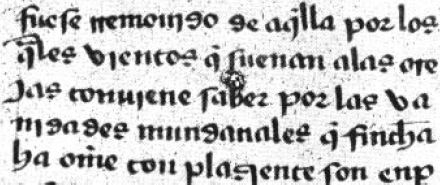 fuese remouiendo de aq̃lla por los
q̃les vientos q̃ suenan alas ore
jas conuiene saber por las va
nidades mundanales q̃ fincha
ha om̃e con plaziente son enp